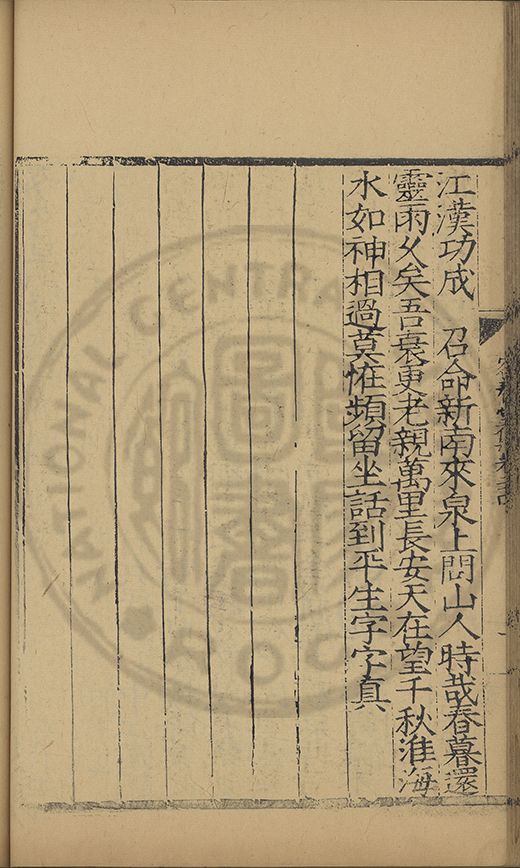 江漢功成　召命新南來泉上問山人時哉春暮還
靈雨久矣吾衰更老親萬里長安天在望千秋淮海
水如神相過莫惟頻留坐話到平生字字真
NATIONAL CENTRAL